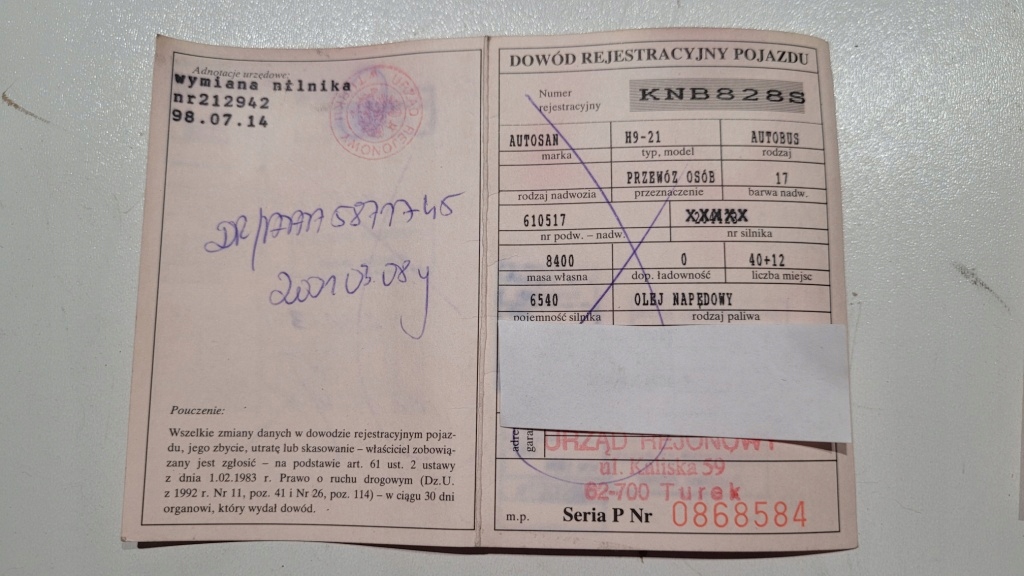 Adnotacje urzędowe:
wymiana silnika
nr212942
98.07.14
2001.03.08
Pouczenie:
Wszelkie zmiany danych w dowodzie rejestracyjnym pojaz-
du, jego zbycie, utratę lub skasowanie – właściciel zobowią-
zany jest zgłosić – na podstawie art. 61 ust. 2 ustawy
z dnia 1.02.1983 r. Prawo o ruchu drogowym (Dz.U.
z 1992 r. Nr 11, poz. 41 i Nr 26, poz. 114) – w ciągu 30 dni
organowi, który wydał dowód.
DOWÓD REJESTRACYJNY POJAZDU
Numer
rejestracyjny
KNB828S
AUTOSAN H9-21 AUTOBUS
marka typ, model rodzaj
PRZEWÓZ OSÓB 17
rodzaj nadwozia przeznaczenie barwa nadw.
610517
nr podw. – nadw. nr silnika
8400 0 40+12
masa własna dop. ładowność liczba miejsc
6540 OLEJ NAPĘDOWY
pojemność silnika rodzaj paliwa
URZĄD REJONOWY
ul. Kaliska 59
62-700 Turek
m.p. Seria P Nr 0868584